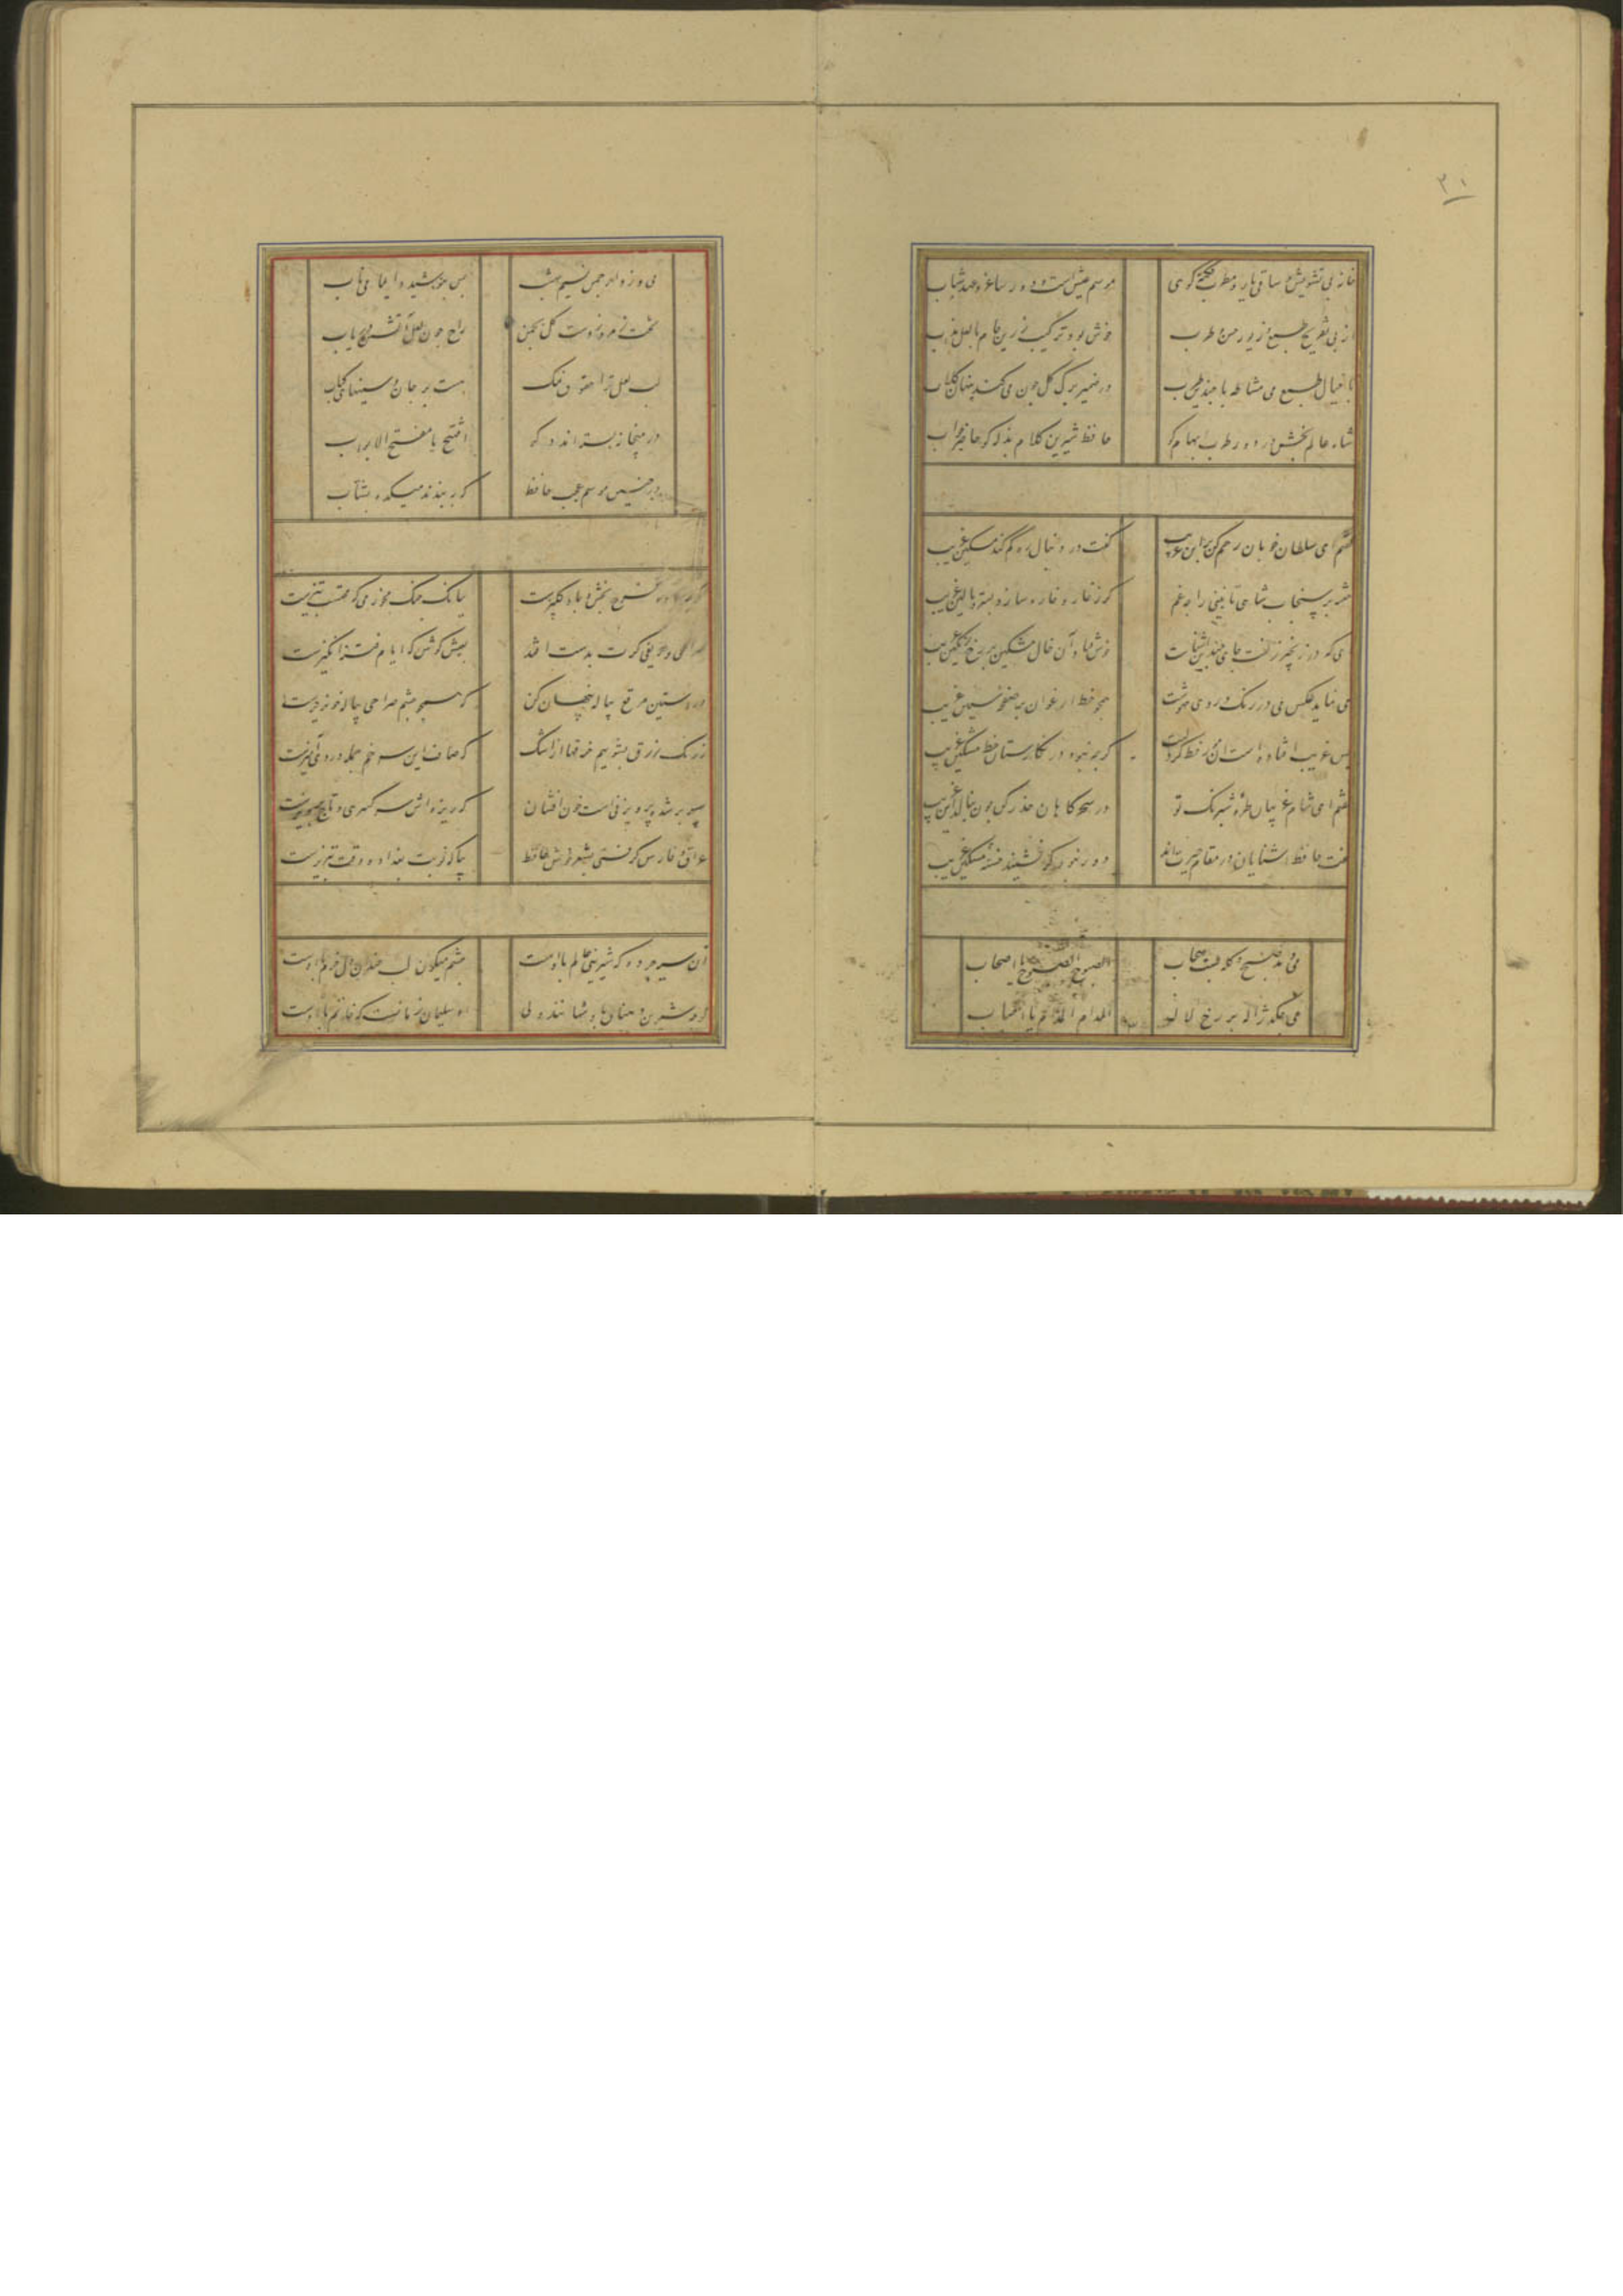 ۳۱
خانه بی تشویش و ساقی یار و مطرب نکته گوی موسم عیش است و دور ساغر و عهد شباب
از پی تفریح طبع و زیور حسن و طرب خوش بود ترکیب زرین جام با لعل مذاب
با خیال طبع می مشاطه با چندین طرب در ضمیر برگ گل خون می کند پنهان گلاب
شاه عالم بخش در دور طرب ایهام گو حافظ شیرین کلام بذله گو حاضر جواب
گفتم ای سلطان خوبان رحم کن بر این غریب گفت در دنبال دل ره گم کند مسکین غریب
بر سنجاب شاهی نازنینی را چه غم گر ز خار و خاره سازد بستر و بالین غریب
ای که در زنجیر زلفت جای چندین آشناست خوش فتاد آن خال مشکین بر رخ رنگین غریب
می نماید عکس می در رنگ روی مهوشت همچو خط ارغوان بر صفحه نسرین غریب
بس غریب افتاده است آن مور خط گرد لبت گر چه نبود در نگارستان خط مشکین غریب
گفتم ای شام غریبان طره شبرنگ تو در سحرگاهان حذر کن چون بنالد این غریب
گفت حافظ آشنایان در مقام حیرت اند دور نبود گر نشیند خسته مسکین غریب
می دمد صبح و کله بست سحاب الصبوح الصبوح یا اصحاب
می چکد ژاله بر رخ لاله المدام المدام یا احباب
می وزد از چمن نسیم بهشت پس بنوشید دایما می ناب
تخت زمرد زدست گل بچمن راح چون لعل آتشین دریاب
لب لعل ترا حقوق نمک هست بر جان و سینهای کباب
در میخانه بسته اند دگر افتتح یا مفتح الابواب
در چنین موسم عجب حافظ که ببندند میکده بشتاب
اگرچه باده فرح بخش و باد گلبیزست ببانگ چنگ مخور می که محتسب تیزست
صراحی و حریفی گرت بدست افتد بعیش کوش که ایام فتنه انگیزست
در آستین مرقع پیاله پنهان کن که همچو چشم صراحی پیاله خونریزست
ز رنگ زرق بشوییم خرقها از اشک که صاف این سر خم جمله دردی آمیزست
سپهر بر شده پرویزنی است خون افشان که ریزه اش سر کسری و تاج پرویزست
عراق و فارس گرفتی بشعر خوش حافظ بیا که نوبت بغداد و وقت تبریزست
آن سیه چرده که شیرینی عالم با اوست چشم میگون لب خندان دل خرم با اوست
گرچه شیرین دهنان پادشهانند ولی او سلیمان زمانست که خاتم با اوست